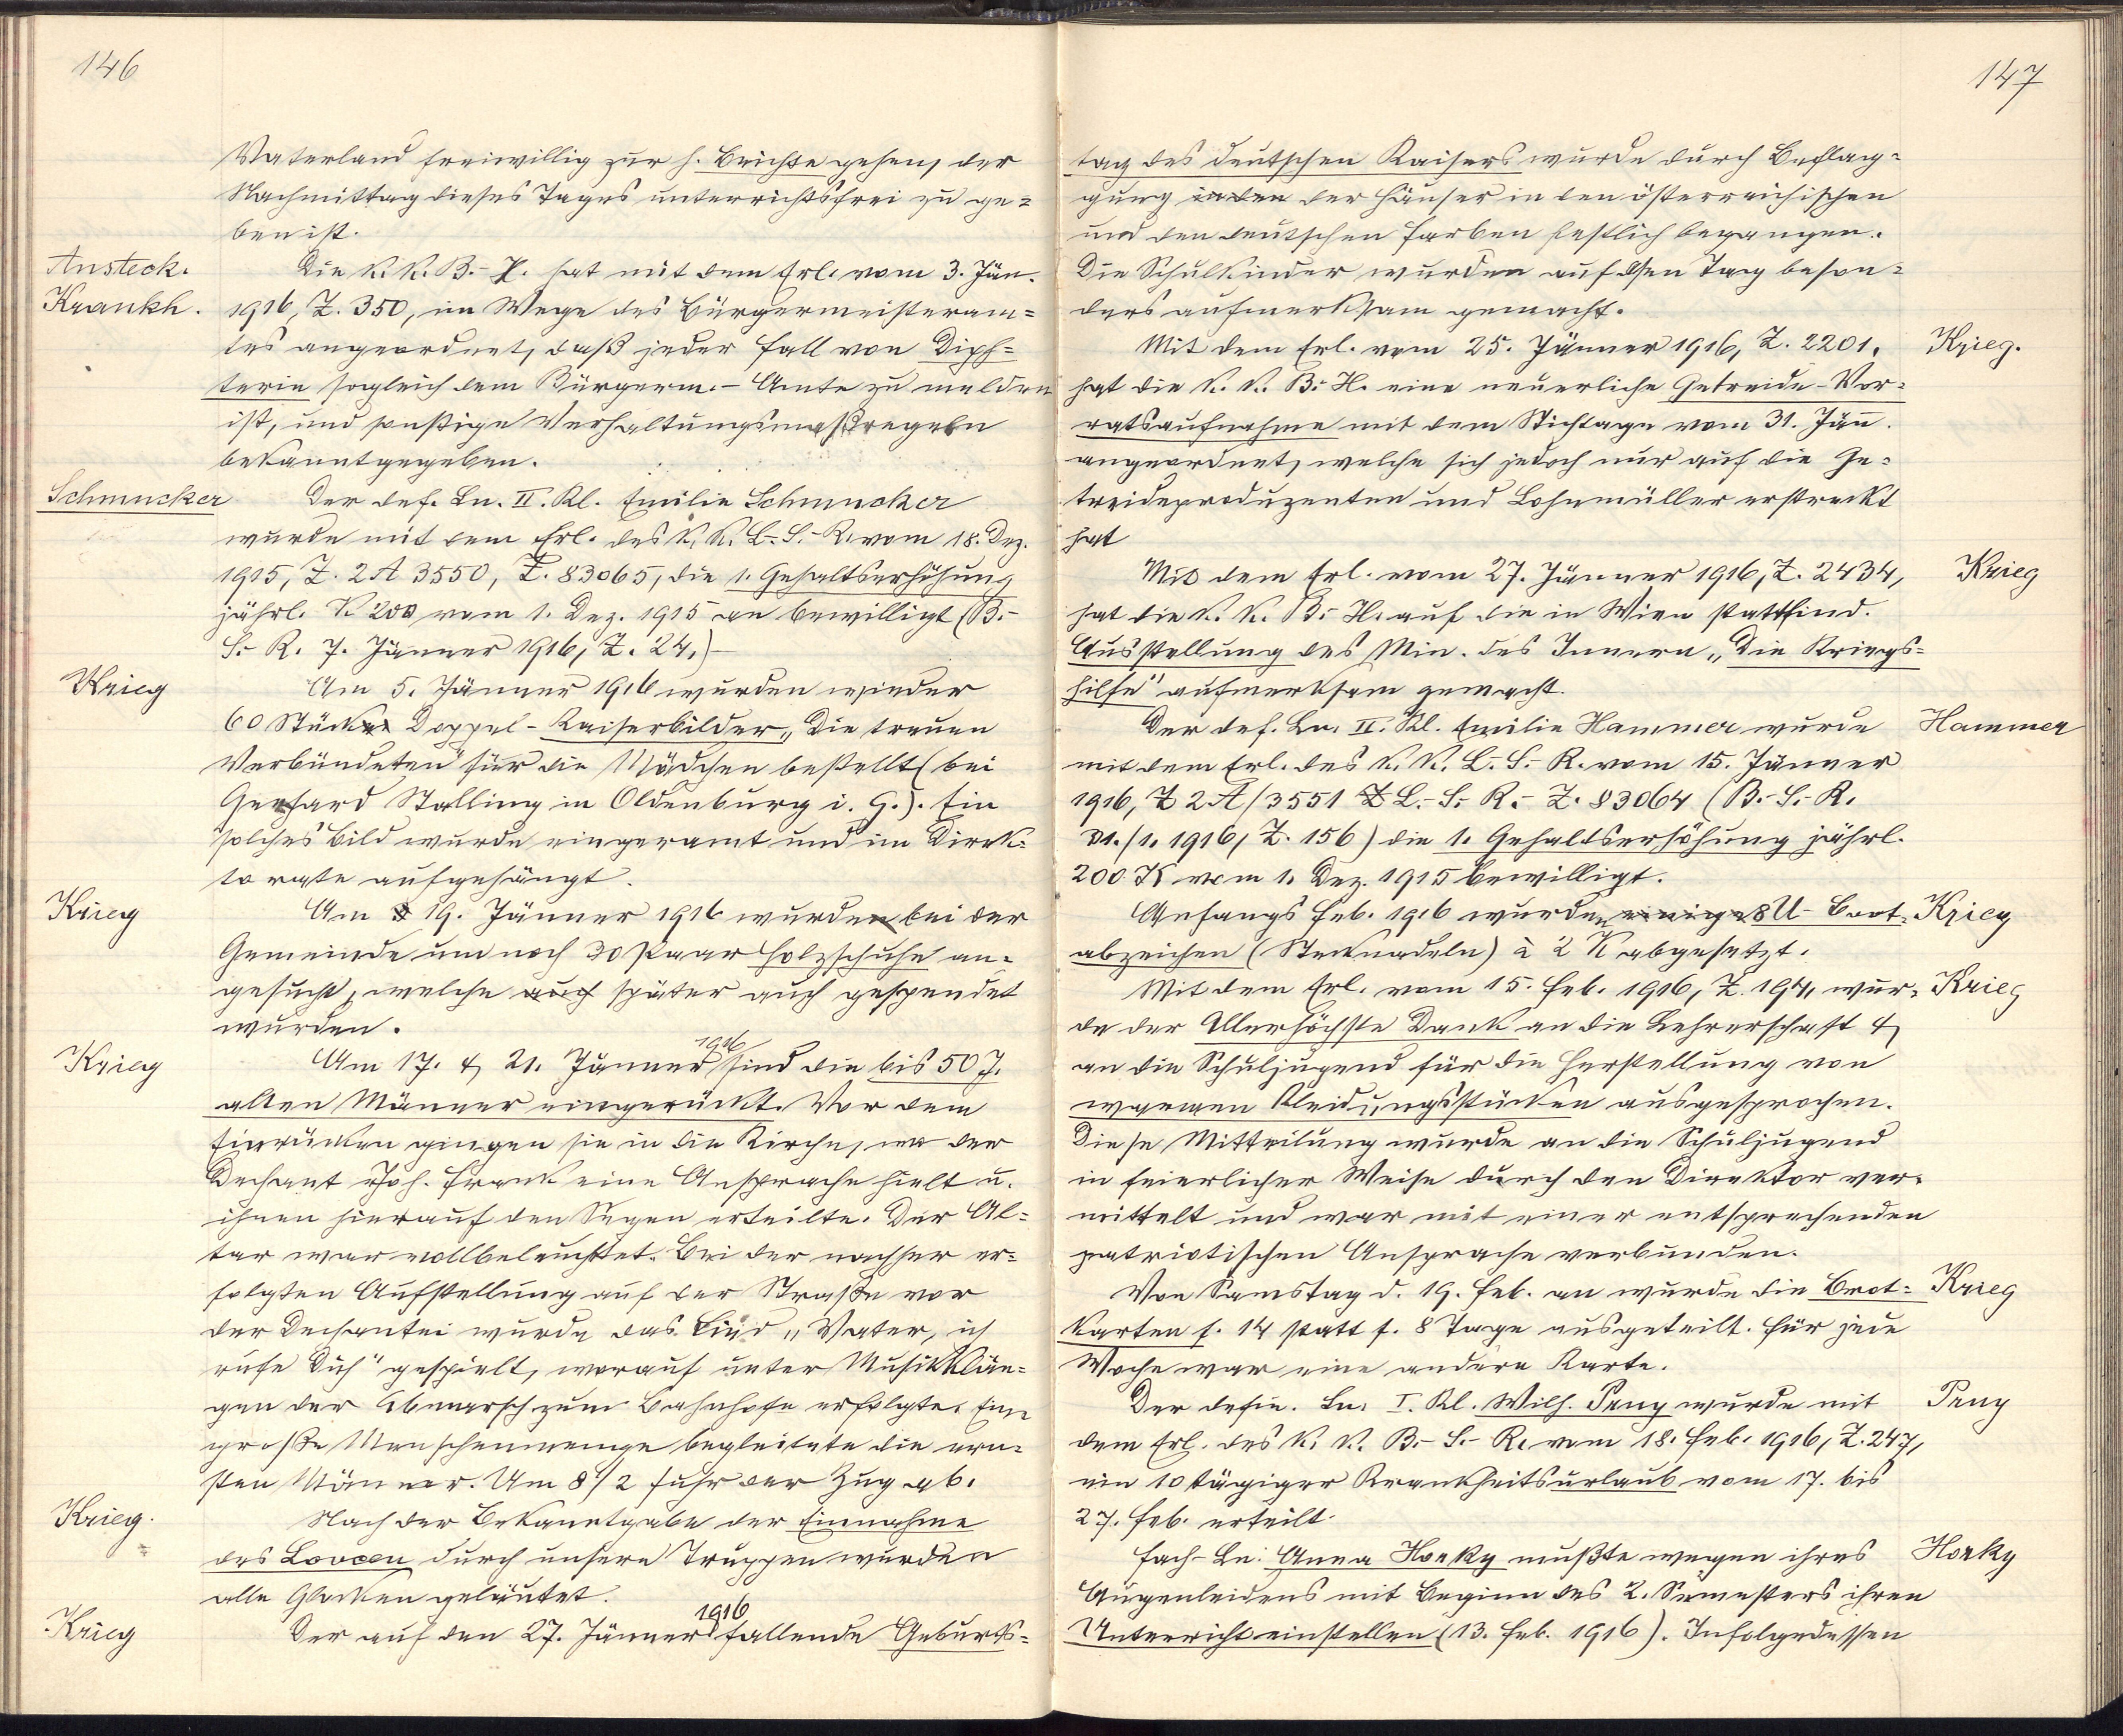 146
Vaterland freiwillig zur h. Beichte gehen, der
Nachmittag dieses Tages unterrichtsfrei zu ge=
ben ist.
Ansteck. Die k. k. B.-H. hat mit dem Erl. vom 3. Jän.
Krankh. 1916, Z. 350, im Wege des Bürgermeisteram=
tes angeordnet, daß jeder Fall von Diph=
terie sogleich dem Bürgerm.-Amte zu melden
ist, und sonstige Verhaltungsmaßregeln
bekanntgegeben.
Schmucker Der def. Ln. II. Kl. Emilie Schmucker
wurde mit dem Erl. des k. k. L.-S.-R. vom 18. Dez.
1915, Z. 2A 3550, Z. 83065, die 1. Gehaltserhöhung
jährl. K 200 vom 1. Dez. 1915 an bewilligt (B.-
S.-R. 7. Jänner 1916, Z. 24.)
Krieg Am 5. Jänner 1916 wurden wieder
60 Stück Doppel-Kaiserbilder „Die treuen
Verbündeten" für die Mädchen bestellt (bei
Gerhard Stalling in Oldenburg i. G.). Ein
solches Bild wurde eingeramt und im Direk=
torate aufgehängt.
Krieg Am 19. Jänner 1916 wurden bei der
Gemeinde um noch 30 Paar Holzschuhe an=
gesucht, welche auch später auch gespendet
wurden.
Krieg Am 17. & 21. Jänner 1916 sind die bis 50 J.
alten Männer eingerückt. Vor dem
Einrücken gingen sie in die Kirche, wo der
Dechant Joh. Frank eine Ansprache hielt u.
ihnen hierauf den Segen erteilte. Der Al=
tar war vollbeleuchtet. Bei der nachher er=
folgten Aufstellung auf der Straße vor
der Dechantei wurde das Lied „Vater, ich
rufe Dich" gespielt, worauf unter Musikklän=
gen der Abmarsch zum Bahnhofe erfolgte. Eine
große Menschenmenge begleitete die ern=
sten Männer. Um 8 1/2 fuhr der Zug ab.
Krieg. Nach der Bekanntgabe der Einnahme
des Lovcen durch unsere Truppen wurden
alle Glocken geläutet.
Krieg Der auf den 27. Jänner 1916 fallende Geburts=
147
tag des deutschen Kaisers wurde durch Beflag=
gung in den der Häuser in den österreichischen
und den deutschen Farben festlich begangen.
Die Schulkinder wurden auf den Tag beson=
ders aufmerksam gemacht.
Mit dem Erl. vom 25. Jänner 1916, Z. 2201, Krieg.
hat die k. k. B.-H. eine neuerliche Getreide-Vor=
ratsaufnahme mit dem Stichtage vom 31. Jän.
angeordnet, welche sich jedoch nur auf die Ge=
treideproduzenten und Lohnmüller erstreckt
hat
Mit dem Erl. vom 27. Jänner 1916, Z. 2434, Krieg
hat die k. k. B.-H. auf die in Wien stattfind.
Ausstellung des Min. des Innern „Die Kriegs=
hilfe" aufmerksam gemacht.
Der def. Ln. II. Kl. Emilie Hammer wurde Hammer
mit dem Erl. des k. k. L.-S.-R. vom 15. Jänner
1916, Z 2A/3551 Z L.-S.-R.-Z. 83064 (B.-S.-R.
31./1. 1916, Z. 156) die 1. Gehaltserhöhung jährl.
200 K vom 1. Dez. 1915 bewilligt.
Anfangs Feb. 1916 wurden einige 8 U-Boot= Krieg
abzeichen (Stecknadeln) à 2 K abgesetzt.
Mit dem Erl. vom 15. Feb. 1916, Z. 194, wur= Krieg
de der Allerhöchste Dank an die Lehrerschaft &
an die Schuljugend für die Herstellung von
warmen Kleidungsstücken ausgesprochen.
Diese Mitteilung wurde an die Schuljugend
in feierlicher Weise durch den Direktor ver=
mittelt und war mit einer entsprechenden
patriotischen Ansprache verbunden.
Von Samstag d. 19. Feb. an wurde die Brot= Krieg
karten f. 14 statt f. 8 Tage ausgeteilt. Für jede
Woche war eine andere Karte.
Der defin. Ln. I. Kl. Wilh. Peny wurde mit Peny
dem Erl. des k. k. B.-S.-R. vom 18. Feb. 1916, Z. 247,
ein 10 tägiger Krankheitsurlaub vom 17. bis
27. Feb. erteilt.
Fach-Ln. Anna Horky mußte wegen ihres Horky
Augenleidens mit Beginn des 2. Semesters ihren
Unterricht einstellen (13. Feb. 1916). Infolgedessen